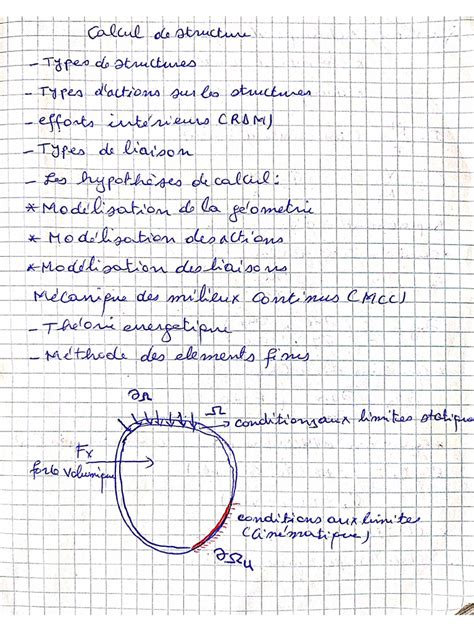 Calcul de structure
- Types de structures
- Types d'actions sur les structures
- efforts intérieurs (RDM)
- Types de liaison
- Les hypothèses de calcul :
* Modélisation de la géometrie
* Modélisation des actions
* Modélisation des liaisons
Mécanique des milieux Continus (MCC)
- Théorie energetique
- Méthode des elements finis
∂Ω
Ω
conditions aux limites statique
Fx
force volumique
conditions aux limites
(cinématique)
∂Ωu